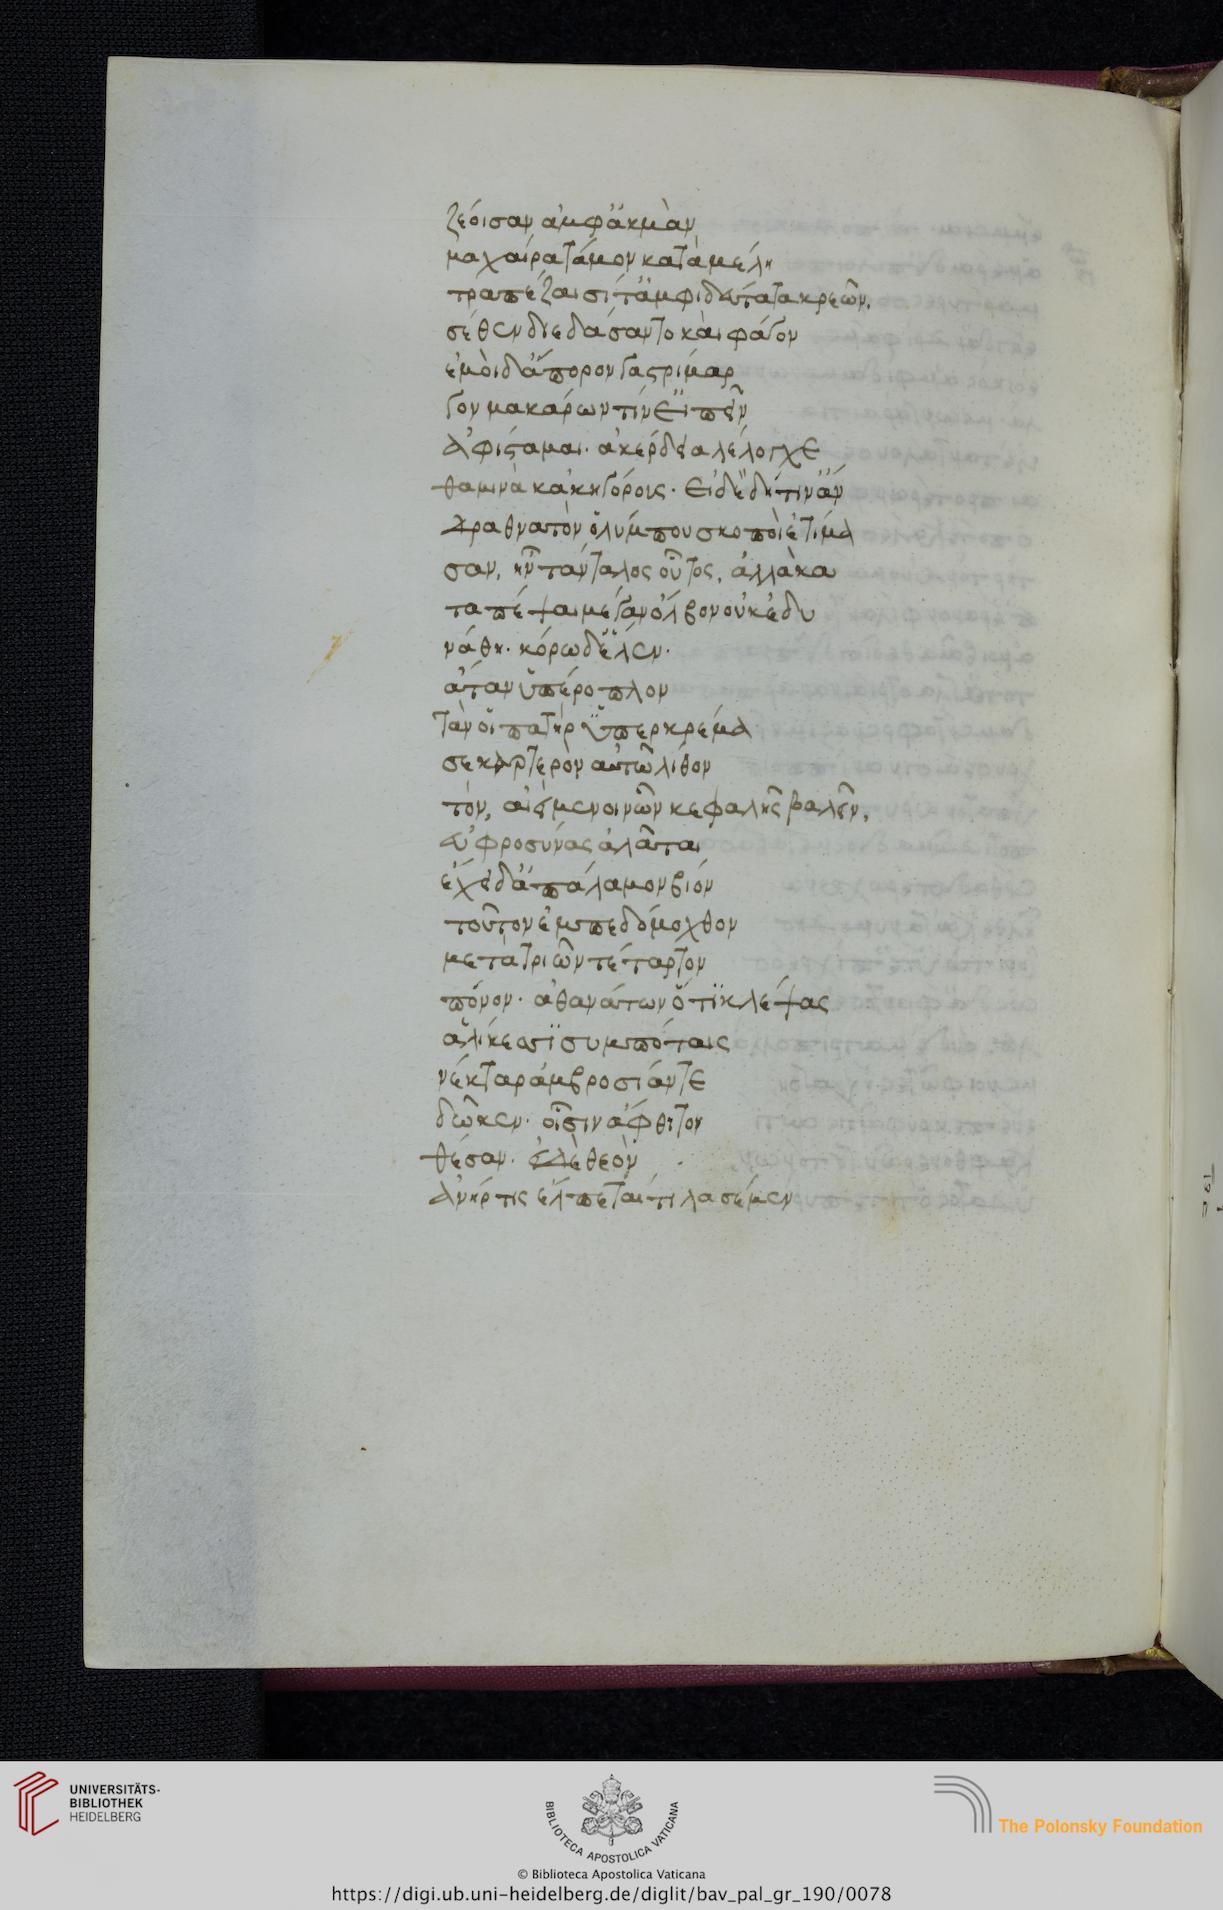 ζέοισαν ἀμφ' ἀκμὰν
μαχαίρα τάμον κατὰ μέλη
τραπέζαισί τ' ἀμφὶ δεύτατα κρεῶν,
σέθεν διεδάσαντο καὶ φάγον
ἐμοὶ δ' ἄπορον γαστρίμαρ
γον μακάρων τίν' εἰπεῖν
ἀφίσταμαι· ἀκέρδεα λέλογχε
θαμινὰ κακηγόροις· εἰ δὲ δή τιν' ἄν
δρα θνατὸν ὀλύμπου σκοποὶ ἐτίμα
σαν, ἦν τάνταλος οὗτος, ἀλλὰ κα
ταπέψαι μέγαν ὄλβον οὐκ ἐδυ
νάθη· κόρω δ' ἕλεν·
ἄταν ὑπέροπλον
τὰν οἱ πατὴρ ὑπερκρέμα
σε καρτερὸν αὐτῶ λίθον
τὸν, αἰεὶ μενοινῶν κεφαλῆς βαλεῖν,
εὐφροσύνας ἀλᾶται
ἔχει δ' ἀπάλαμον βίον
τοῦτον ἐμπεδόμοχθον
μετὰ τριῶν τέταρτον
πόνον· ἀθανάτων ὅτι κλέψας
ἁλίκεσσι συμπόταις
νέκταρ ἀμβροσίαν τε
δῶκεν· οἷσιν ἄφθιτον
θέσαν· εἰ δὲ θεὸν
ἀνήρ τις ἔλπεταί τι λασέμεν
UNIVERSITÄTS-
BIBLIOTHEK
HEIDELBERG
BIBLIOTECA APOSTOLICA VATICANA
The Polonsky Foundation
© Biblioteca Apostolica Vaticana
https://digi.ub.uni-heidelberg.de/diglit/bav_pal_gr_190/0078